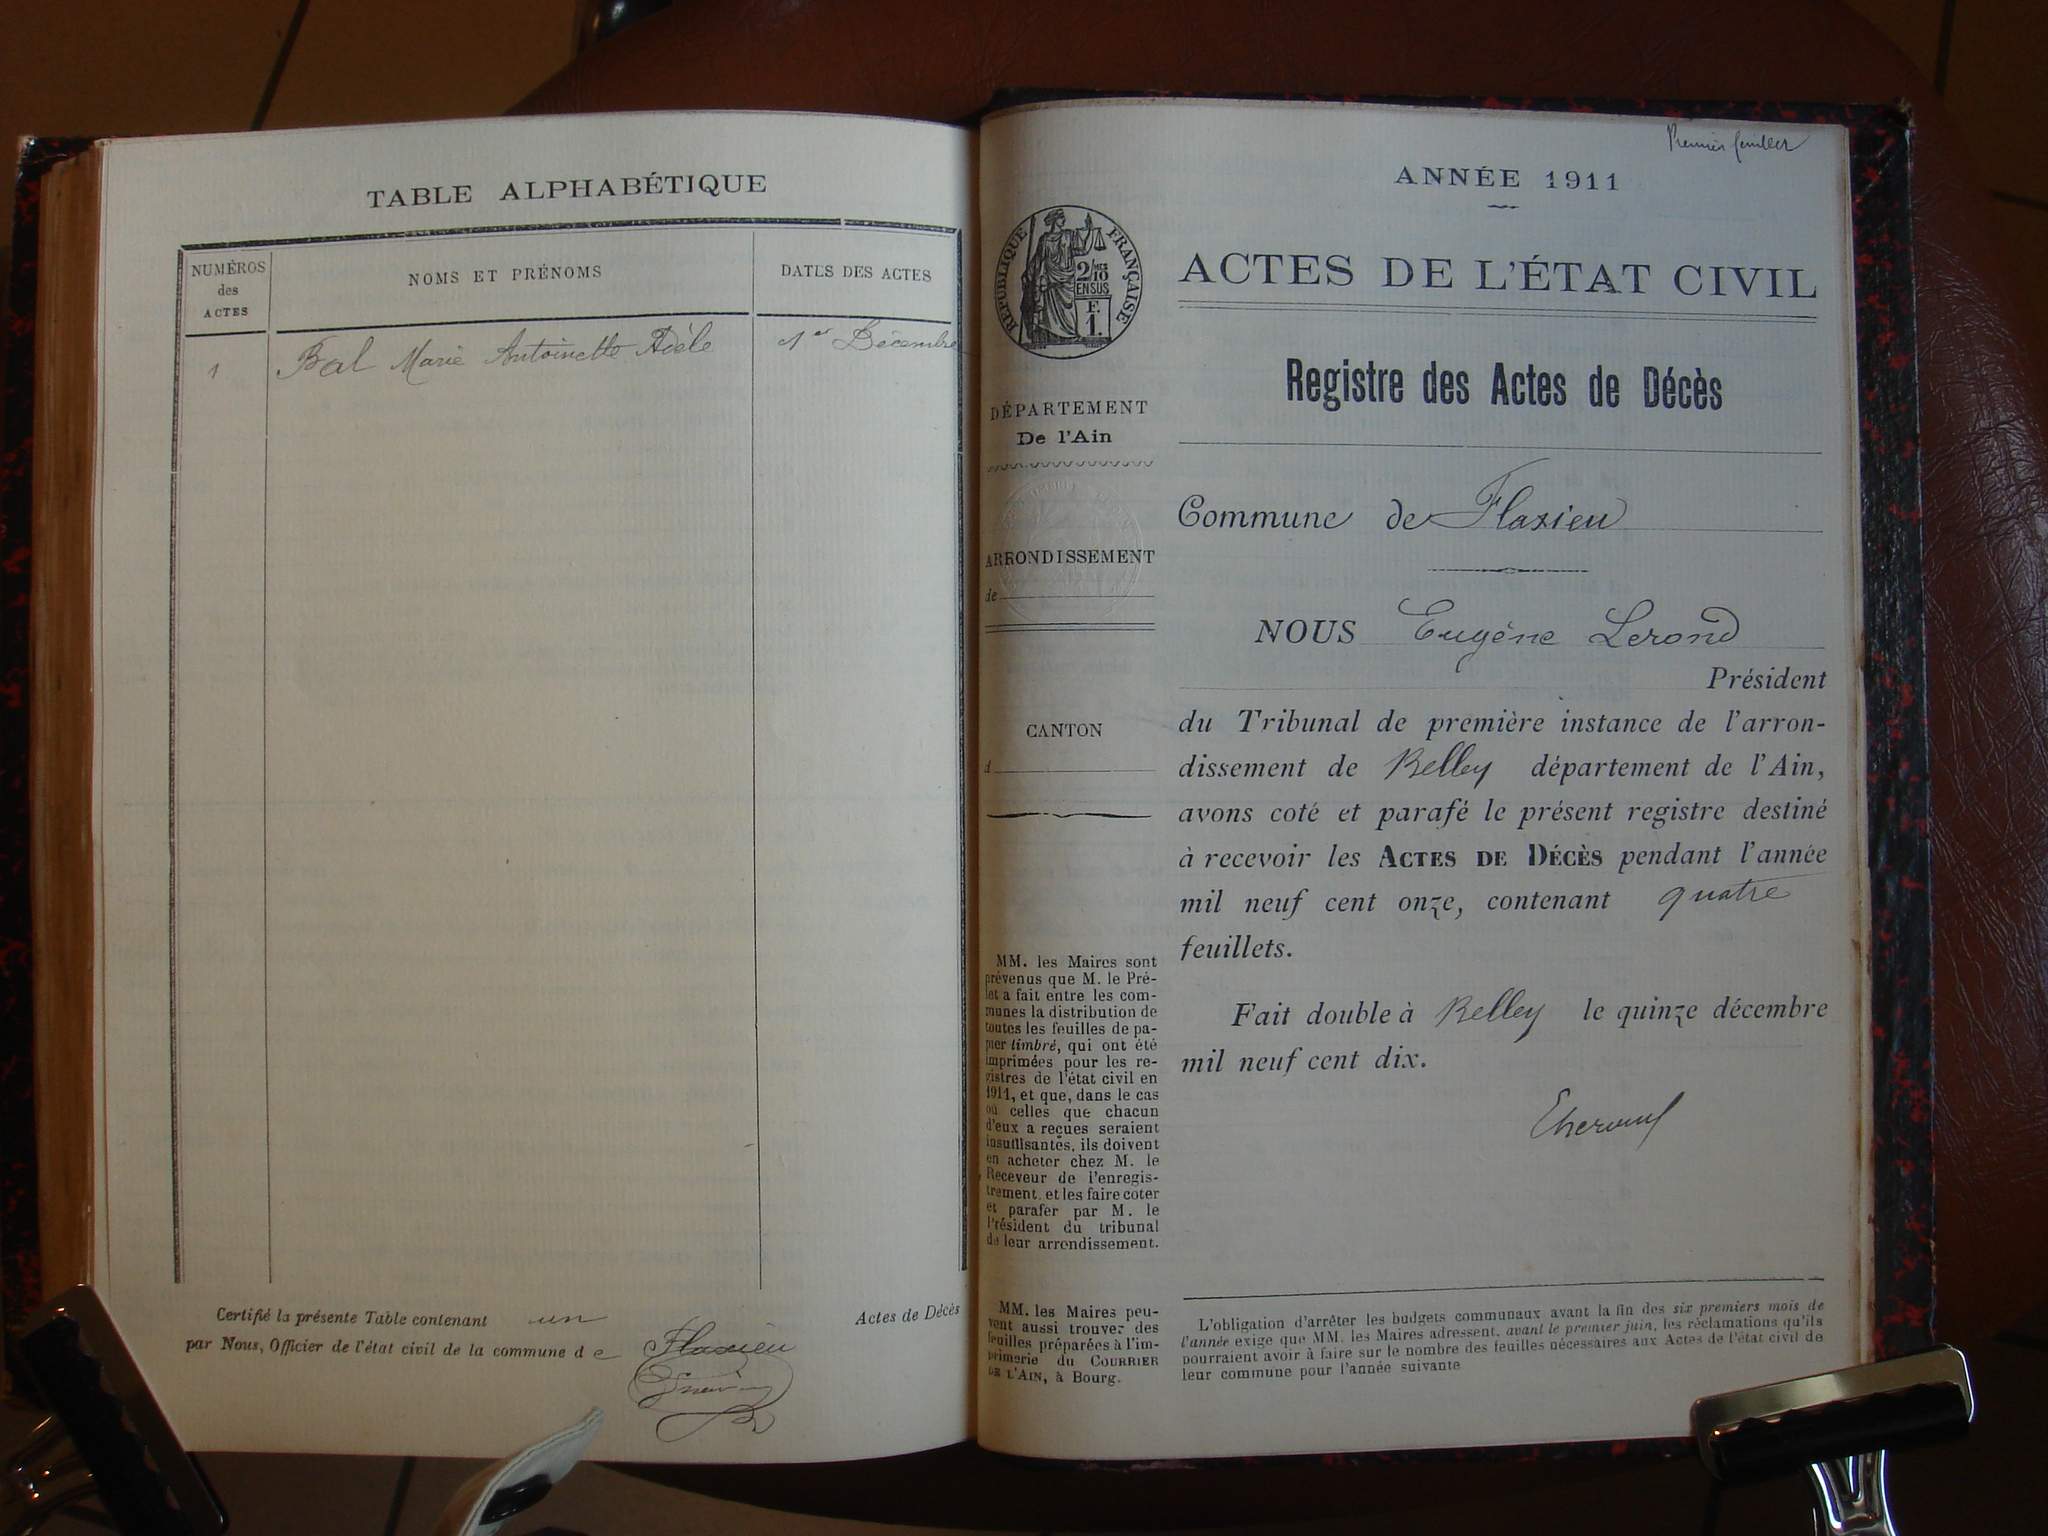 TABLE ALPHABÉTIQUE
NUMÉROS
des
ACTES
NOMS ET PRÉNOMS
DATES DES ACTES
1 Bal Marie Antoinette Adèle 1er Décembre
Certifié la présente Table contenant un
par Nous, Officier de l'état civil de la commune de Flaxieu
Actes de Décès
Premier feuillet
ANNÉE 1911
RÉPUBLIQUE FRANÇAISE
2/10mes
EN SUS
F.
1.
ACTES DE L'ÉTAT CIVIL
Registre des Actes de Décès
DÉPARTEMENT
De l'Ain
ARRONDISSEMENT
de
CANTON
d
MM. les Maires sont
prévenus que M. le Pré-
fet a fait entre les com-
munes la distribution de
toutes les feuilles de pa-
pier timbré, qui ont été
imprimées pour les re-
gistres de l'état civil en
1911, et que, dans le cas
où celles que chacun
d'eux a reçues seraient
insuffisantes, ils doivent
en acheter chez M. le
Receveur de l'enregis-
trement, et les faire coter
et parafer par M. le
Président du tribunal
de leur arrondissement.
MM. les Maires peu-
vent aussi trouver des
feuilles préparées à l'im-
primerie du COURRIER
DE L'AIN, à Bourg.
Commune de Flaxieu
NOUS Eugène Lerond
Président
du Tribunal de première instance de l'arron-
dissement de Belley département de l'Ain,
avons coté et parafé le présent registre destiné
à recevoir les ACTES DE DÉCÈS pendant l'année
mil neuf cent onze, contenant quatre
feuillets.
Fait double à Belley le quinze décembre
mil neuf cent dix.
L'obligation d'arrêter les budgets communaux avant la fin des six premiers mois de
l'année exige que MM. les Maires adressent, avant le premier juin, les réclamations qu'ils
pourraient avoir à faire sur le nombre des feuilles nécessaires aux Actes de l'état civil de
leur commune pour l'année suivante